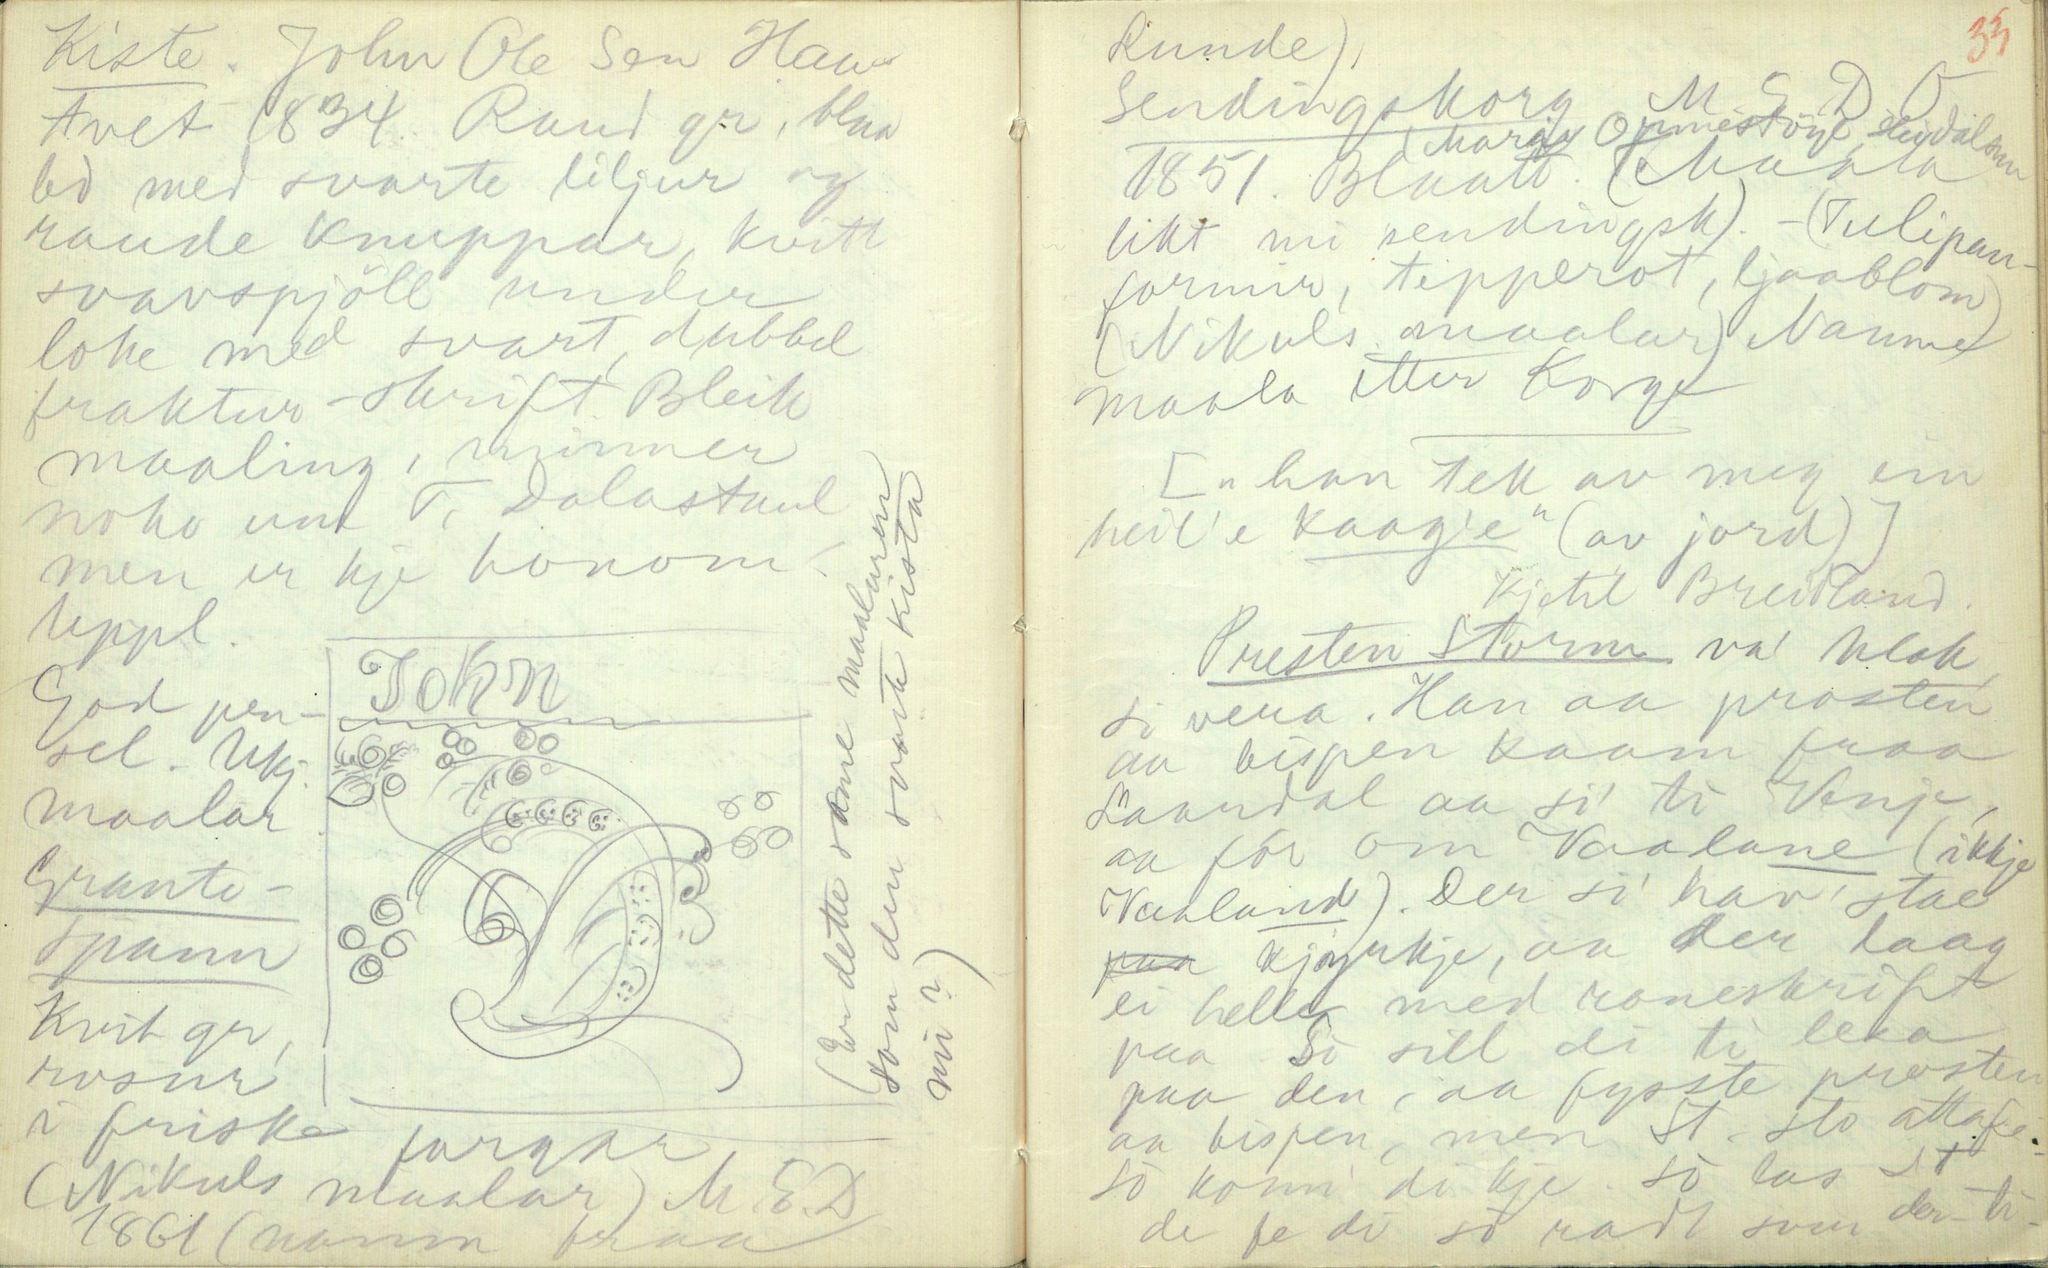 Kiste. John Ole Sen Hau-
tvet 1834. Raud gr, blaa
bd med svarte liljur og
raude knuppar, kvitt
svavspjöll under
loke med svart, dubbel
fraktur-skrift. Bleik
maaling, minner
noko um T. Dalastaul
men er kje honom.
Uppl.
God pen-
sel. Ukj.
maalar
John
(Er dette same maalaren
som den svarte kista
mi?)
Graute-
spann
Kvit gr,
rosur
i friske fargar
(Nikuls maalar) M. E. D
1861 (namn fraa
35
Lunde).
Sendingskorg M S D O
Margit Ormestöyl, Skivdalom
1851. Blaatt. (Maala
likt mi sendingsk). - (Tulipan-
formir, tipperot, ljaablom)
(Nikuls maalar) Namne
maala etter Korgje
["han tek av meg ein
heil'e kaagje" (av jord)]
Kjetil Breidland.
Presten Storm va' klok,
si vera. Han aa prosten
aa bispen kaam fraa
Laardal aa si' ti Vinje,
aa fór om Vaalane (ikkje
Vaaland). Der si' hav' stae
paa kjyrkje, aa der laag
ei helle med roneskrift
paa. Så sill di ti lesa
paa den, aa fysste prosten
aa bispen, men St. sto attafe.
Så konn' di kje. Så las St
de fe di så radt som den ti-